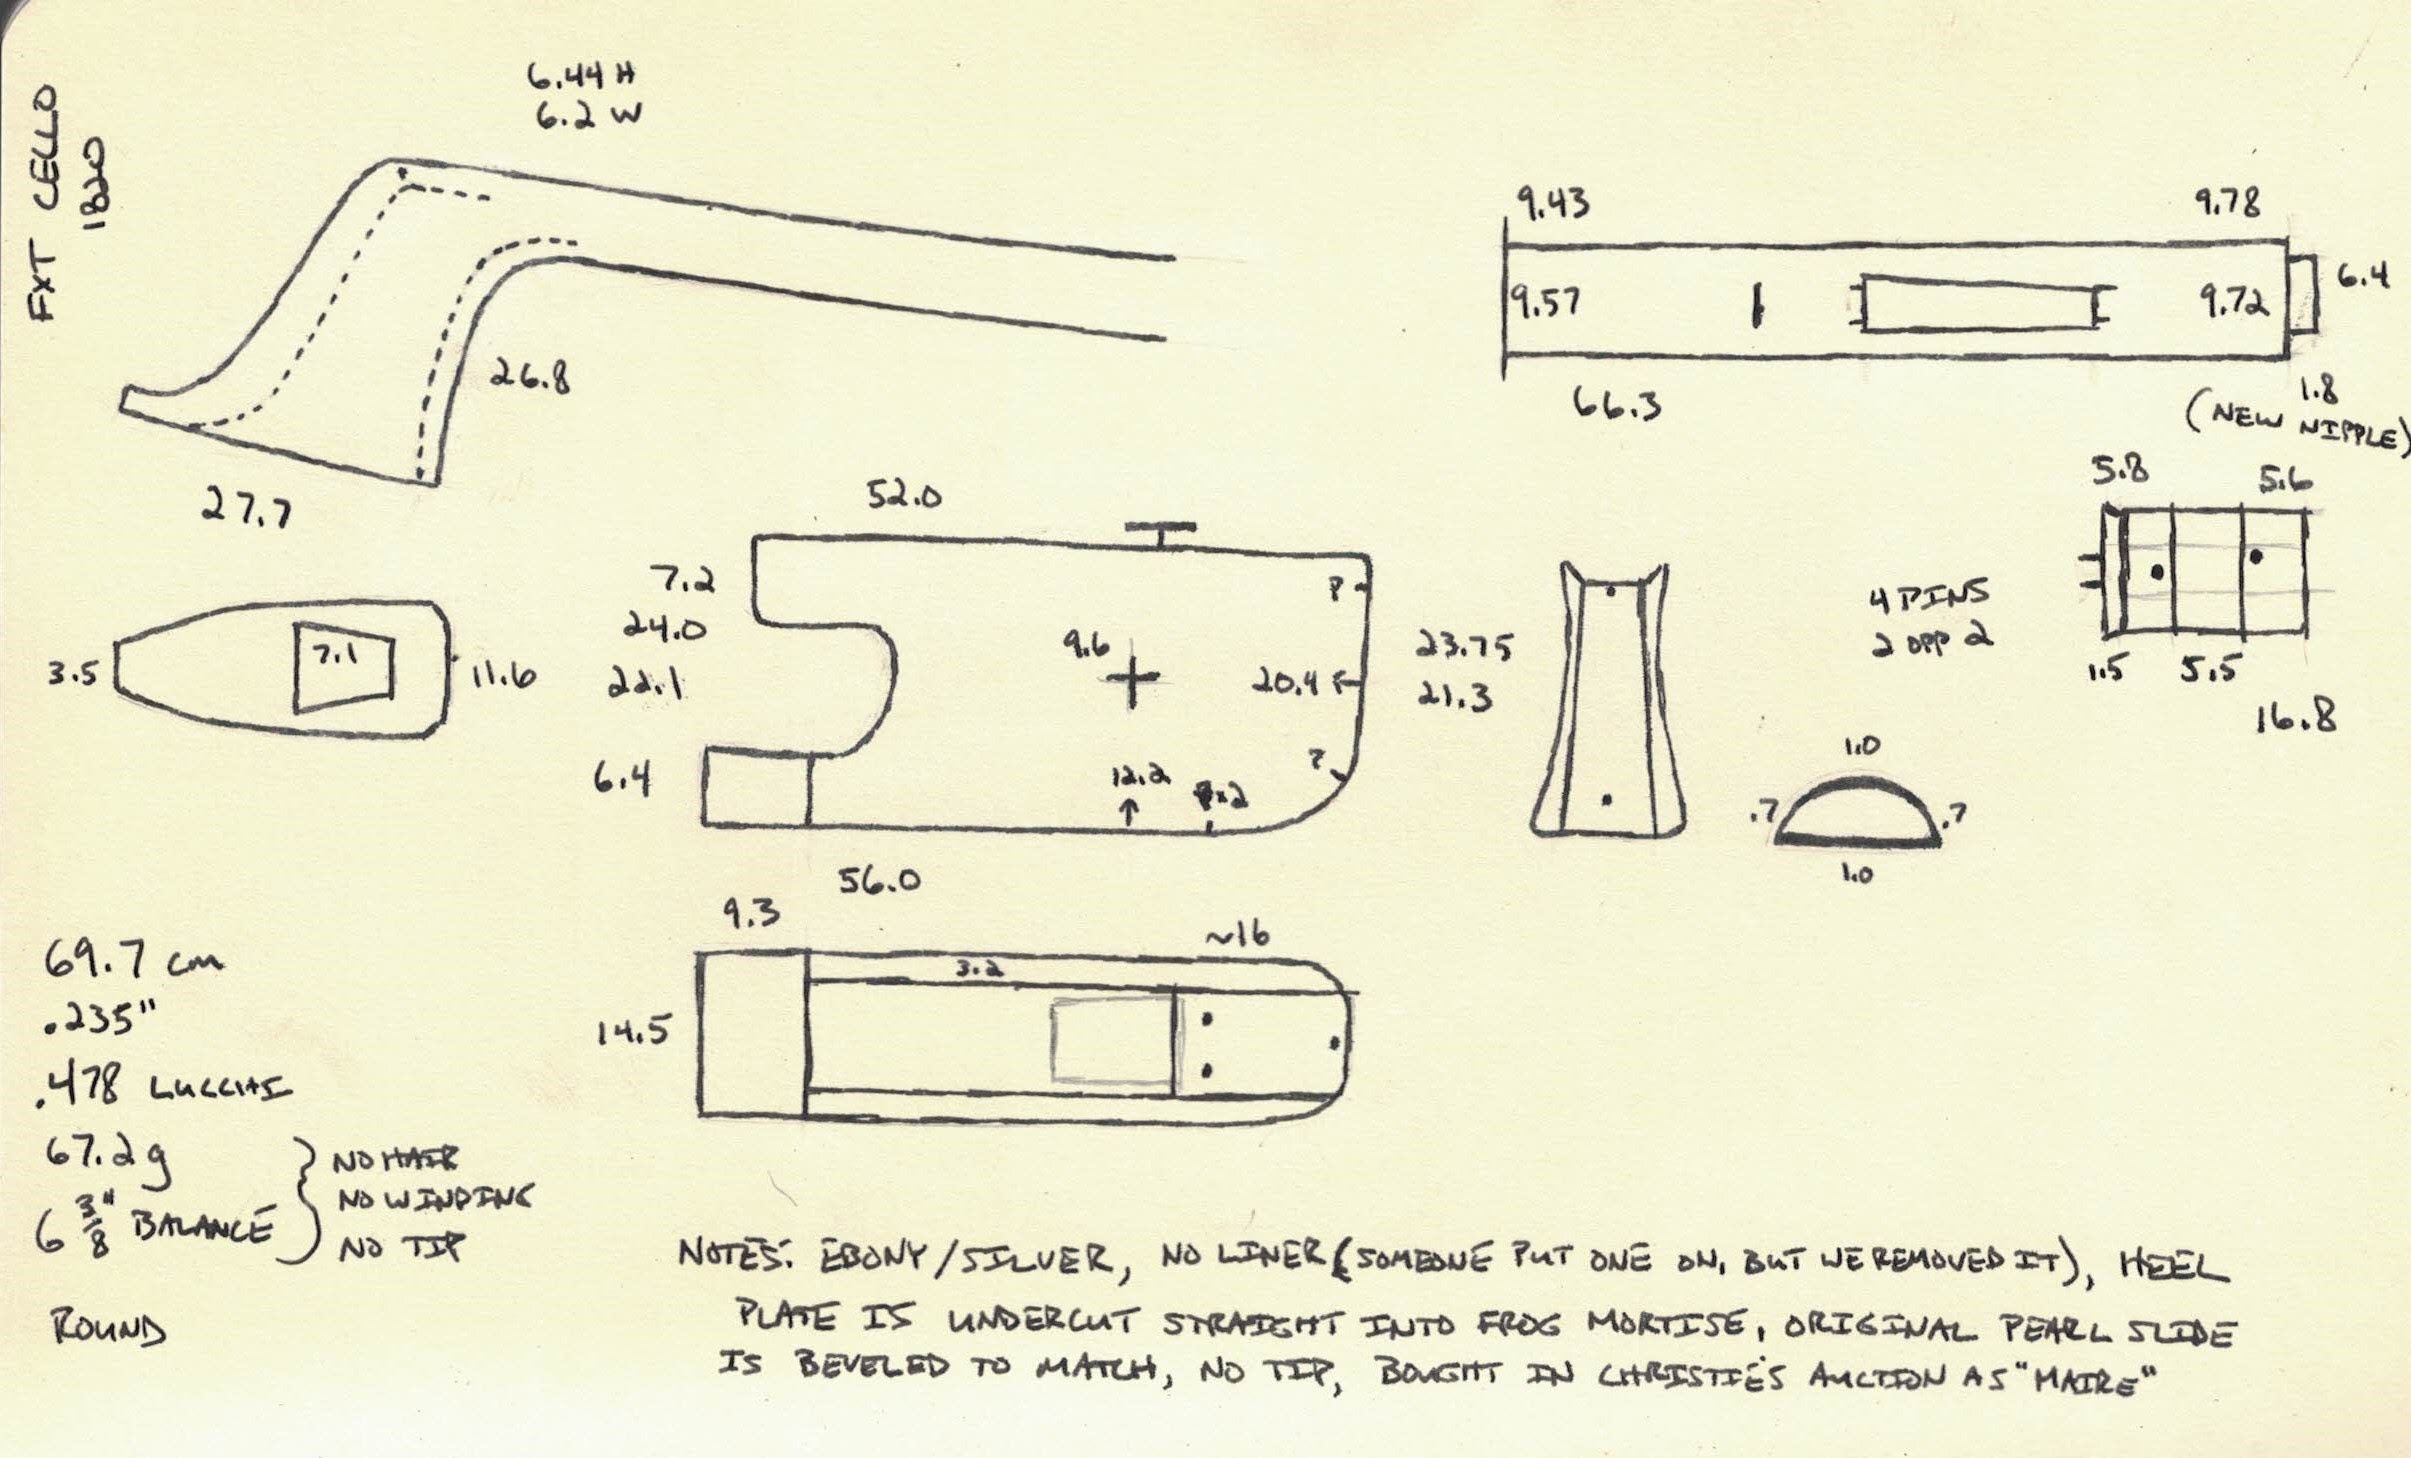 FXT CELLO
1820
6.44 H
6.2 W
26.8
27.7
9.43
9.78
9.57
9.72
6.4
66.3
1.8
(NEW NIPPLE)
3.5
7.1
11.6
52.0
7.2
24.0
22.1
6.4
9.6
P
20.4
12.2
x2
56.0
23.75
21.3
4 PINS
2 OPP 2
5.8
5.6
1.5
5.5
16.8
1.0
.7
.7
1.0
9.3
~16
3.2
14.5
69.7 cm
.235"
.478 LUCCHI
67.2g
6 3/8" BALANCE
NO HAIR
NO WINDING
NO TIP
ROUND
NOTES: EBONY/SILVER, NO LINER (SOMEONE PUT ONE ON, BUT WE REMOVED IT), HEEL
PLATE IS UNDERCUT STRAIGHT INTO FROG MORTISE, ORIGINAL PEARL SLIDE
IS BEVELED TO MATCH, NO TIP, BOUGHT IN CHRISTIE'S AUCTION AS "MAIRE"